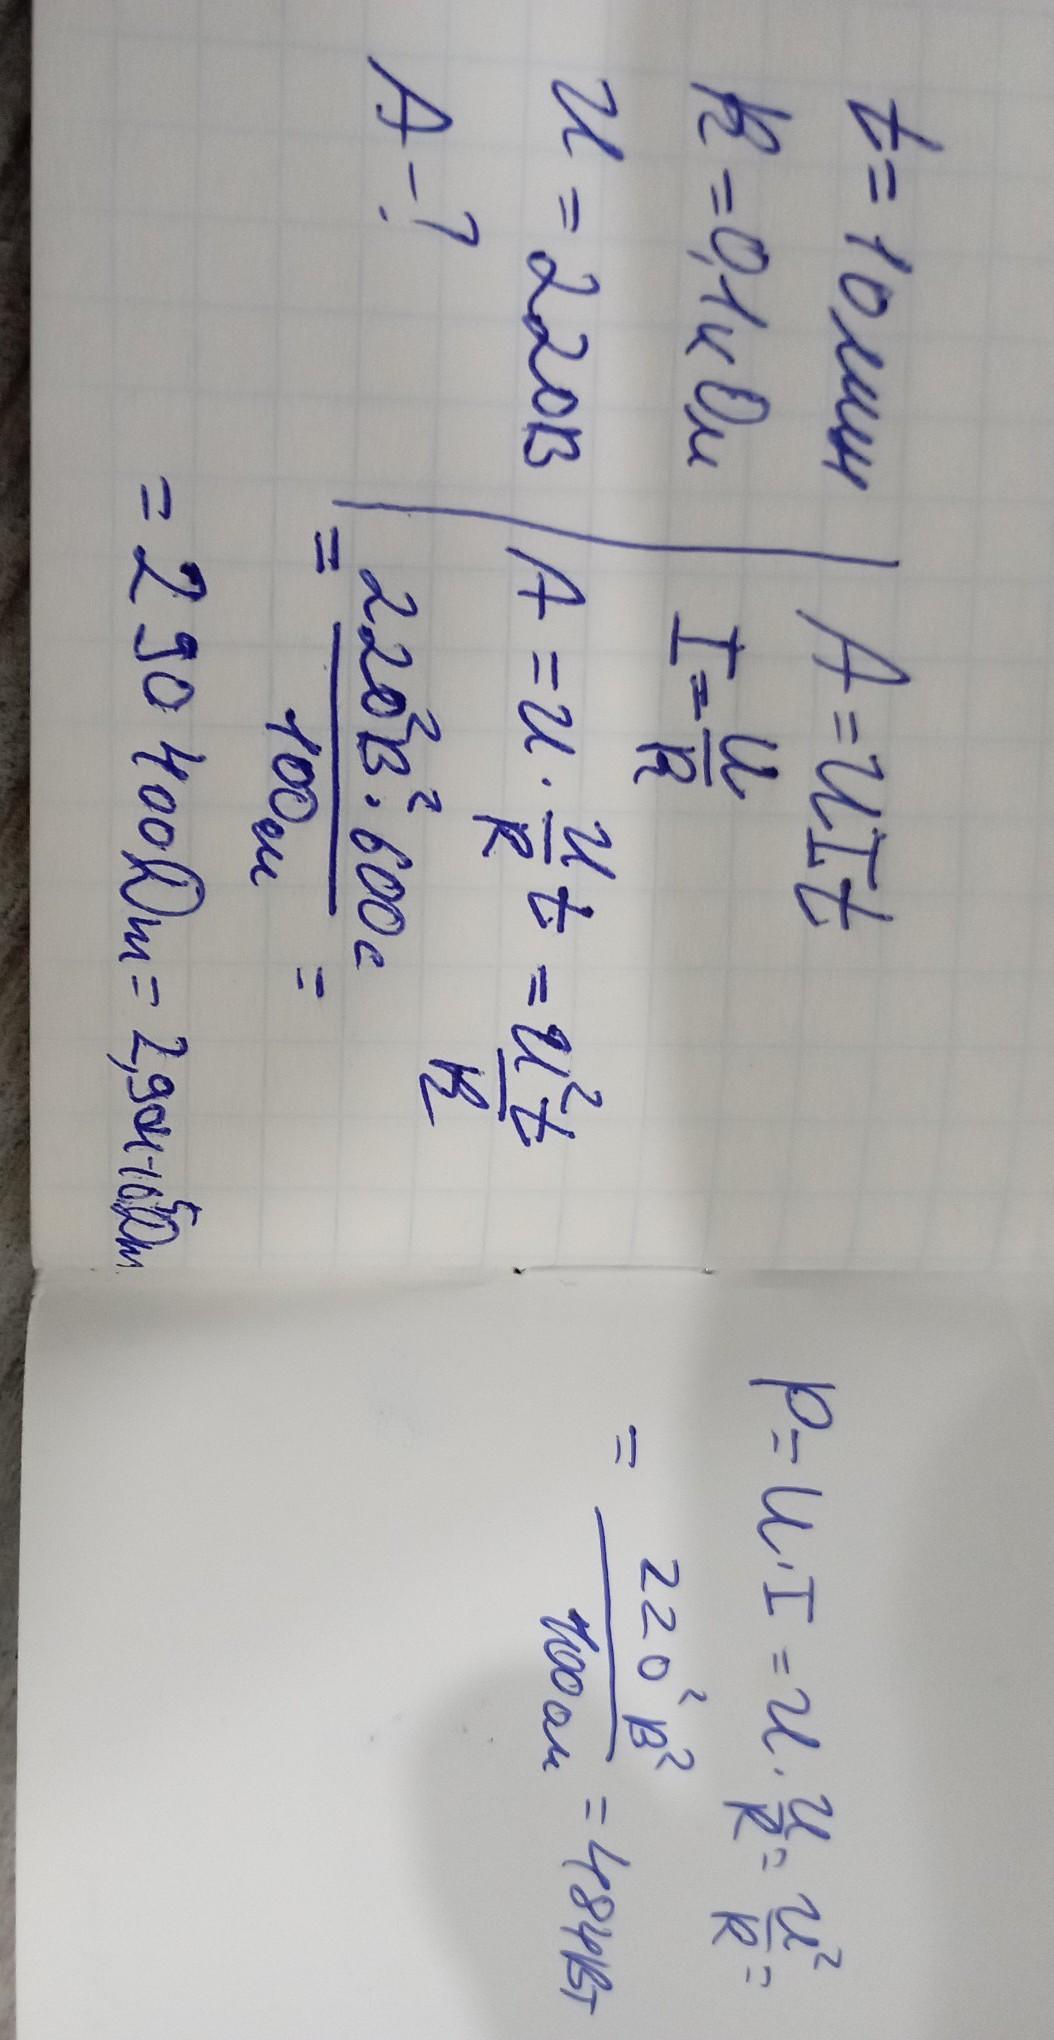 t = 10 мин
R = 0,1 кОм
U = 220В
A - ?
A = UIt
I = U/R
A = U · U/R t = U²t/R
= 220²В² · 600с / 100ом =
= 290 400 Дж = 2,904·10⁵Дж
P = U · I = U · U/R = U²/R =
= 220² В² / 100ом = 484Вт